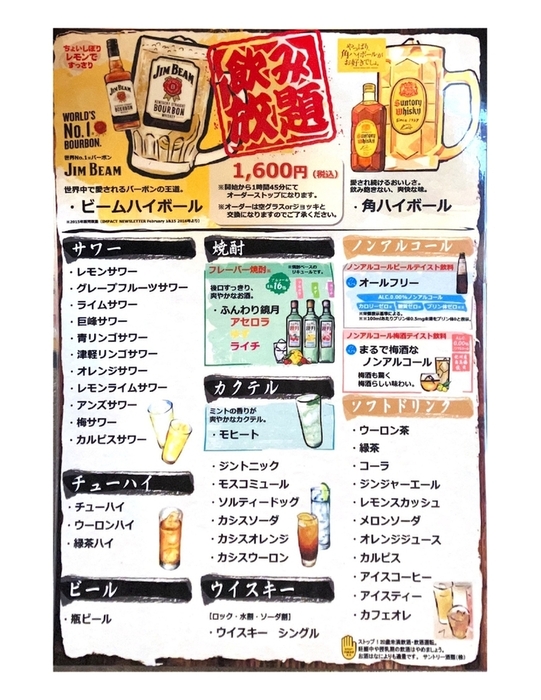 ちょいしぼり
レモンで
すっきり
WORLD'S
No.1
BOURBON.
世界No.1バーボン
JIM BEAM
JIM BEAM
BOURBON
世界中で愛されるバーボンの王道。
・ビームハイボール
飲み
放題
1,600円(税込)
※開始から1時間45分にて
オーダーストップになります。
※オーダーは空グラスorジョッキと
交換になりますのでご了承ください。
やっぱり
角ハイボールが
お好きでしょ
Suntory
Whisky
愛され続けるおいしさ。
飲み飽きない、爽快な味。
・角ハイボール
サワー
・レモンサワー
・グレープフルーツサワー
・ライムサワー
・巨峰サワー
・青リンゴサワー
・津軽リンゴサワー
・オレンジサワー
・レモンライムサワー
・アンズサワー
・梅サワー
・カルピスサワー
チューハイ
・チューハイ
・ウーロンハイ
・緑茶ハイ
ビール
・瓶ビール
焼酎
フレーバー焼酎※
※焼酎ベースの
リキュールです。
16%
後口すっきり、
爽やかなお酒。
・ふんわり鏡月
アセロラ
ゆず
ライチ
カクテル
ミントの香りが
爽やかなカクテル。
・モヒート
・ジントニック
・モスコミュール
・ソルティードッグ
・カシスソーダ
・カシスオレンジ
・カシスウーロン
ウイスキー
[ロック・水割・ソーダ割]
・ウイスキー シングル
ノンアルコール
ノンアルコールビールテイスト飲料
オールフリー
ALC.0.00%ノンアルコール
カロリーゼロ※ 糖質ゼロ※ プリン体ゼロ※
ノンアルコール梅酒テイスト飲料
まるで梅酒な
ノンアルコール
梅酒も驚く
梅酒らしい味わい。
0.00%
ソフトドリンク
・ウーロン茶
・緑茶
・コーラ
・ジンジャーエール
・レモンスカッシュ
・メロンソーダ
・オレンジジュース
・カルピス
・アイスコーヒー
・アイスティー
・カフェオレ
ストップ!20歳未満飲酒・飲酒運転。
妊娠中や授乳期の飲酒はやめましょう。
お酒はなによりも適量です。サントリー酒類(株)